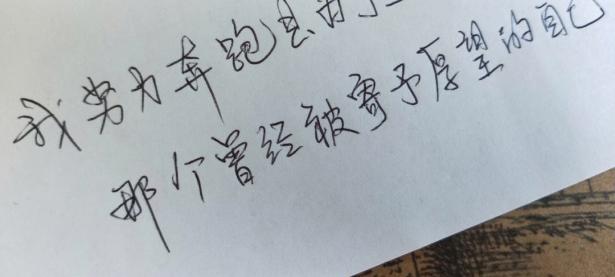 我努力奔跑是为了
那个曾经被寄予厚望的自己